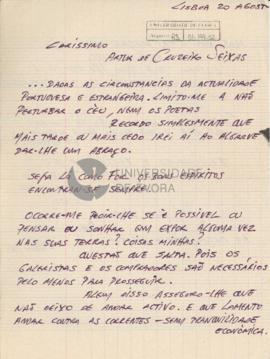 LISBOA 20 AGOST
CARÍSSIMO
ARTUR DE CRUZEIRO SEIXAS
... DADAS AS CIRCUNSTANCIAS DA ACTUALIDADE
PORTUGUESA E ESTRANGEIRA. LIMITO-ME A NÃO
PERTURBAR O CÉU, NEM OS POETAS
RECORDO SIMPLESMENTE QUE
MAIS TARDE OU MAIS CEDO IREI AÍ AO ALGARVE
DAR-LHE UM ABRAÇO.
SEJA LÁ COMO FOR OS BONS ESPÍRITOS
ENCONTRAM-SE SEMPRE.
UNIVERSIDADE
DE ÉVORA
OCORRE-ME PEDIR-LHE SE É POSSIVEL OU
PENSAR OU SONHAR EM EXPOR ALGUMA VEZ
NAS SUAS TERRAS? COISAS MINHAS?
QUESTÃO QUE SALTA. POIS OS
GALERISTAS E OS COMPRADORES SÃO NECESSÁRIOS
PELO MENOS PARA PROSSEGUIR.
ALEM DISSO ASSEGURO-LHE QUE
NÃO DEIXO DE ANDAR ACTIVO. E QUE LAMENTO
ANDAR CONTRA AS CORRENTES - SEM TRANQUILIDADE
ECONÓMICA.